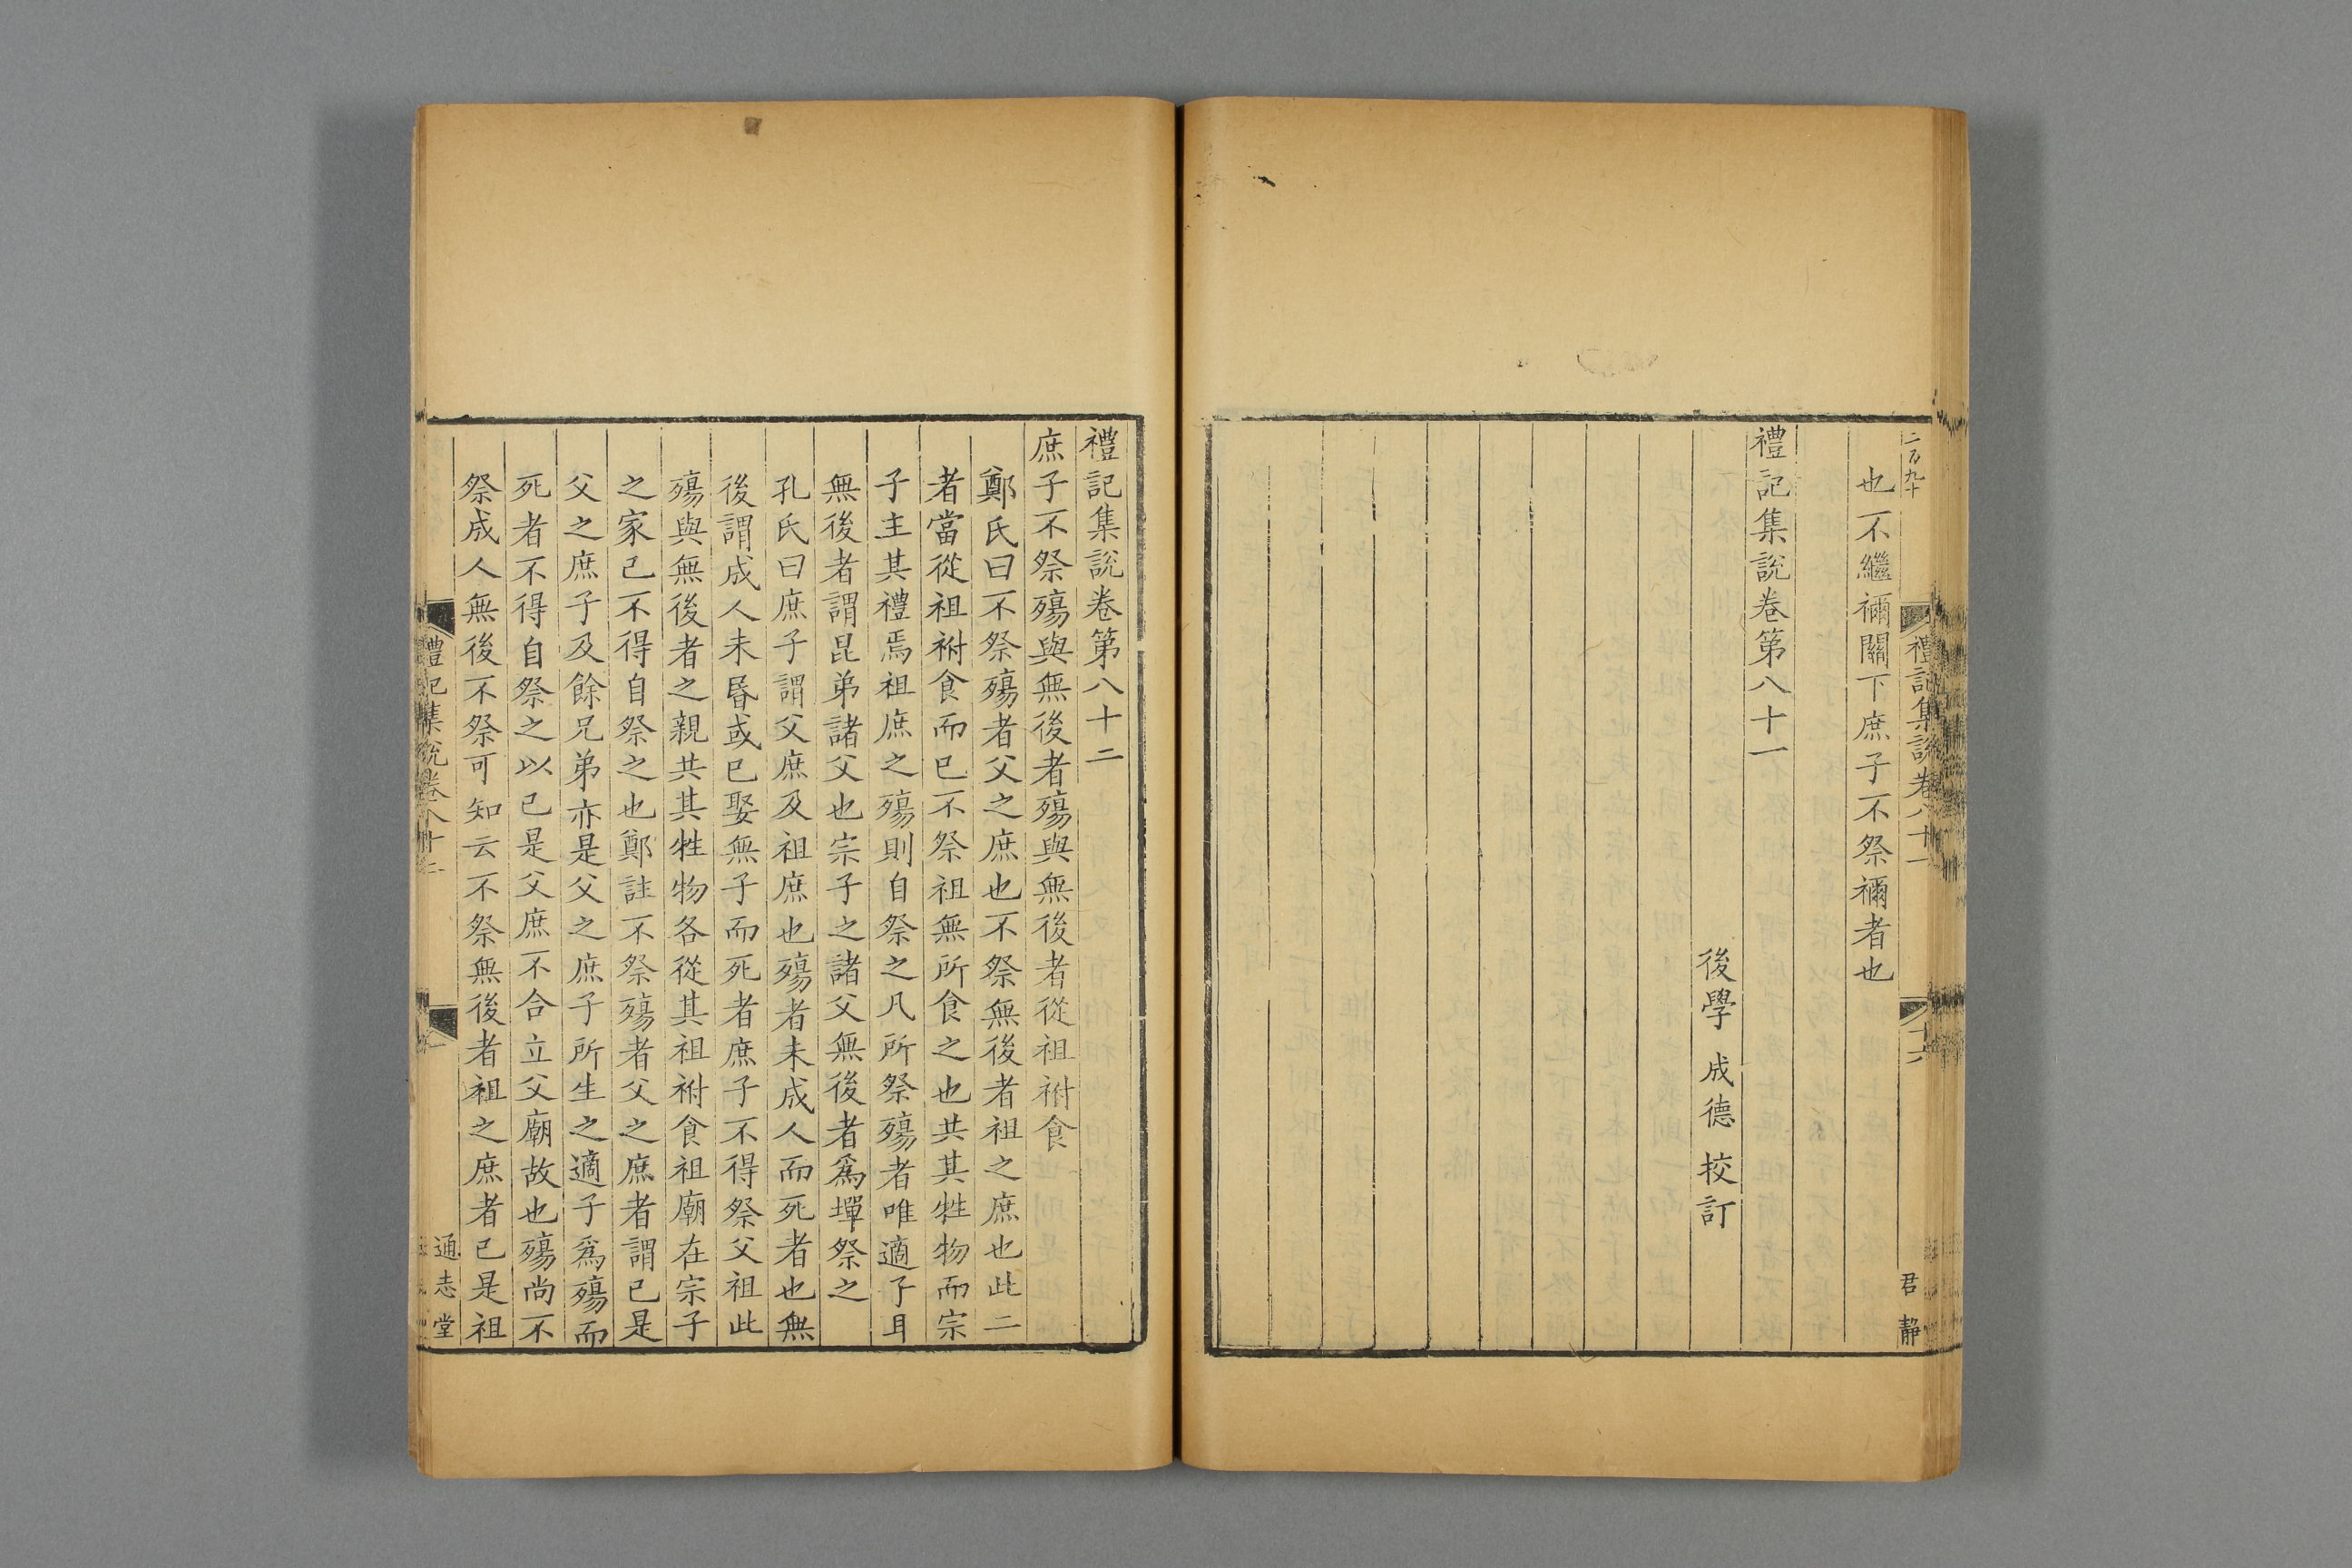 二百九十
禮記集說卷八十一
十六
君靜
也不繼禰關下庶子不祭禰者也
禮記集說卷第八十一
後學 成德 校訂
禮記集說卷第八十二
庶子不祭殤與無後者殤與無後者從祖祔食
鄭氏曰不祭殤者父之庶也不祭無後者祖之庶也此二
者當從祖祔食而已不祭祖無所食之也共其牲物而宗
子主其禮焉祖庶之殤則自祭之凡所祭殤者唯適子耳
無後者謂昆弟諸父也宗子之諸父無後者爲墠祭之
孔氏曰庶子謂父庶及祖庶也殤者未成人而死者也無
後謂成人未昬或已娶無子而死者庶子不得祭父祖此
殤與無後者之親共其牲物各從其祖祔食祖廟在宗子
之家已不得自祭之也鄭註不祭殤者父之庶者謂已是
父之庶子及餘兄弟亦是父之庶子所生之適子爲殤而
死者不得自祭之以已是父庶不合立父廟故也殤尚不
祭成人無後不祭可知云不祭無後者祖之庶者已是祖
禮記集說卷八十二
一
通志堂